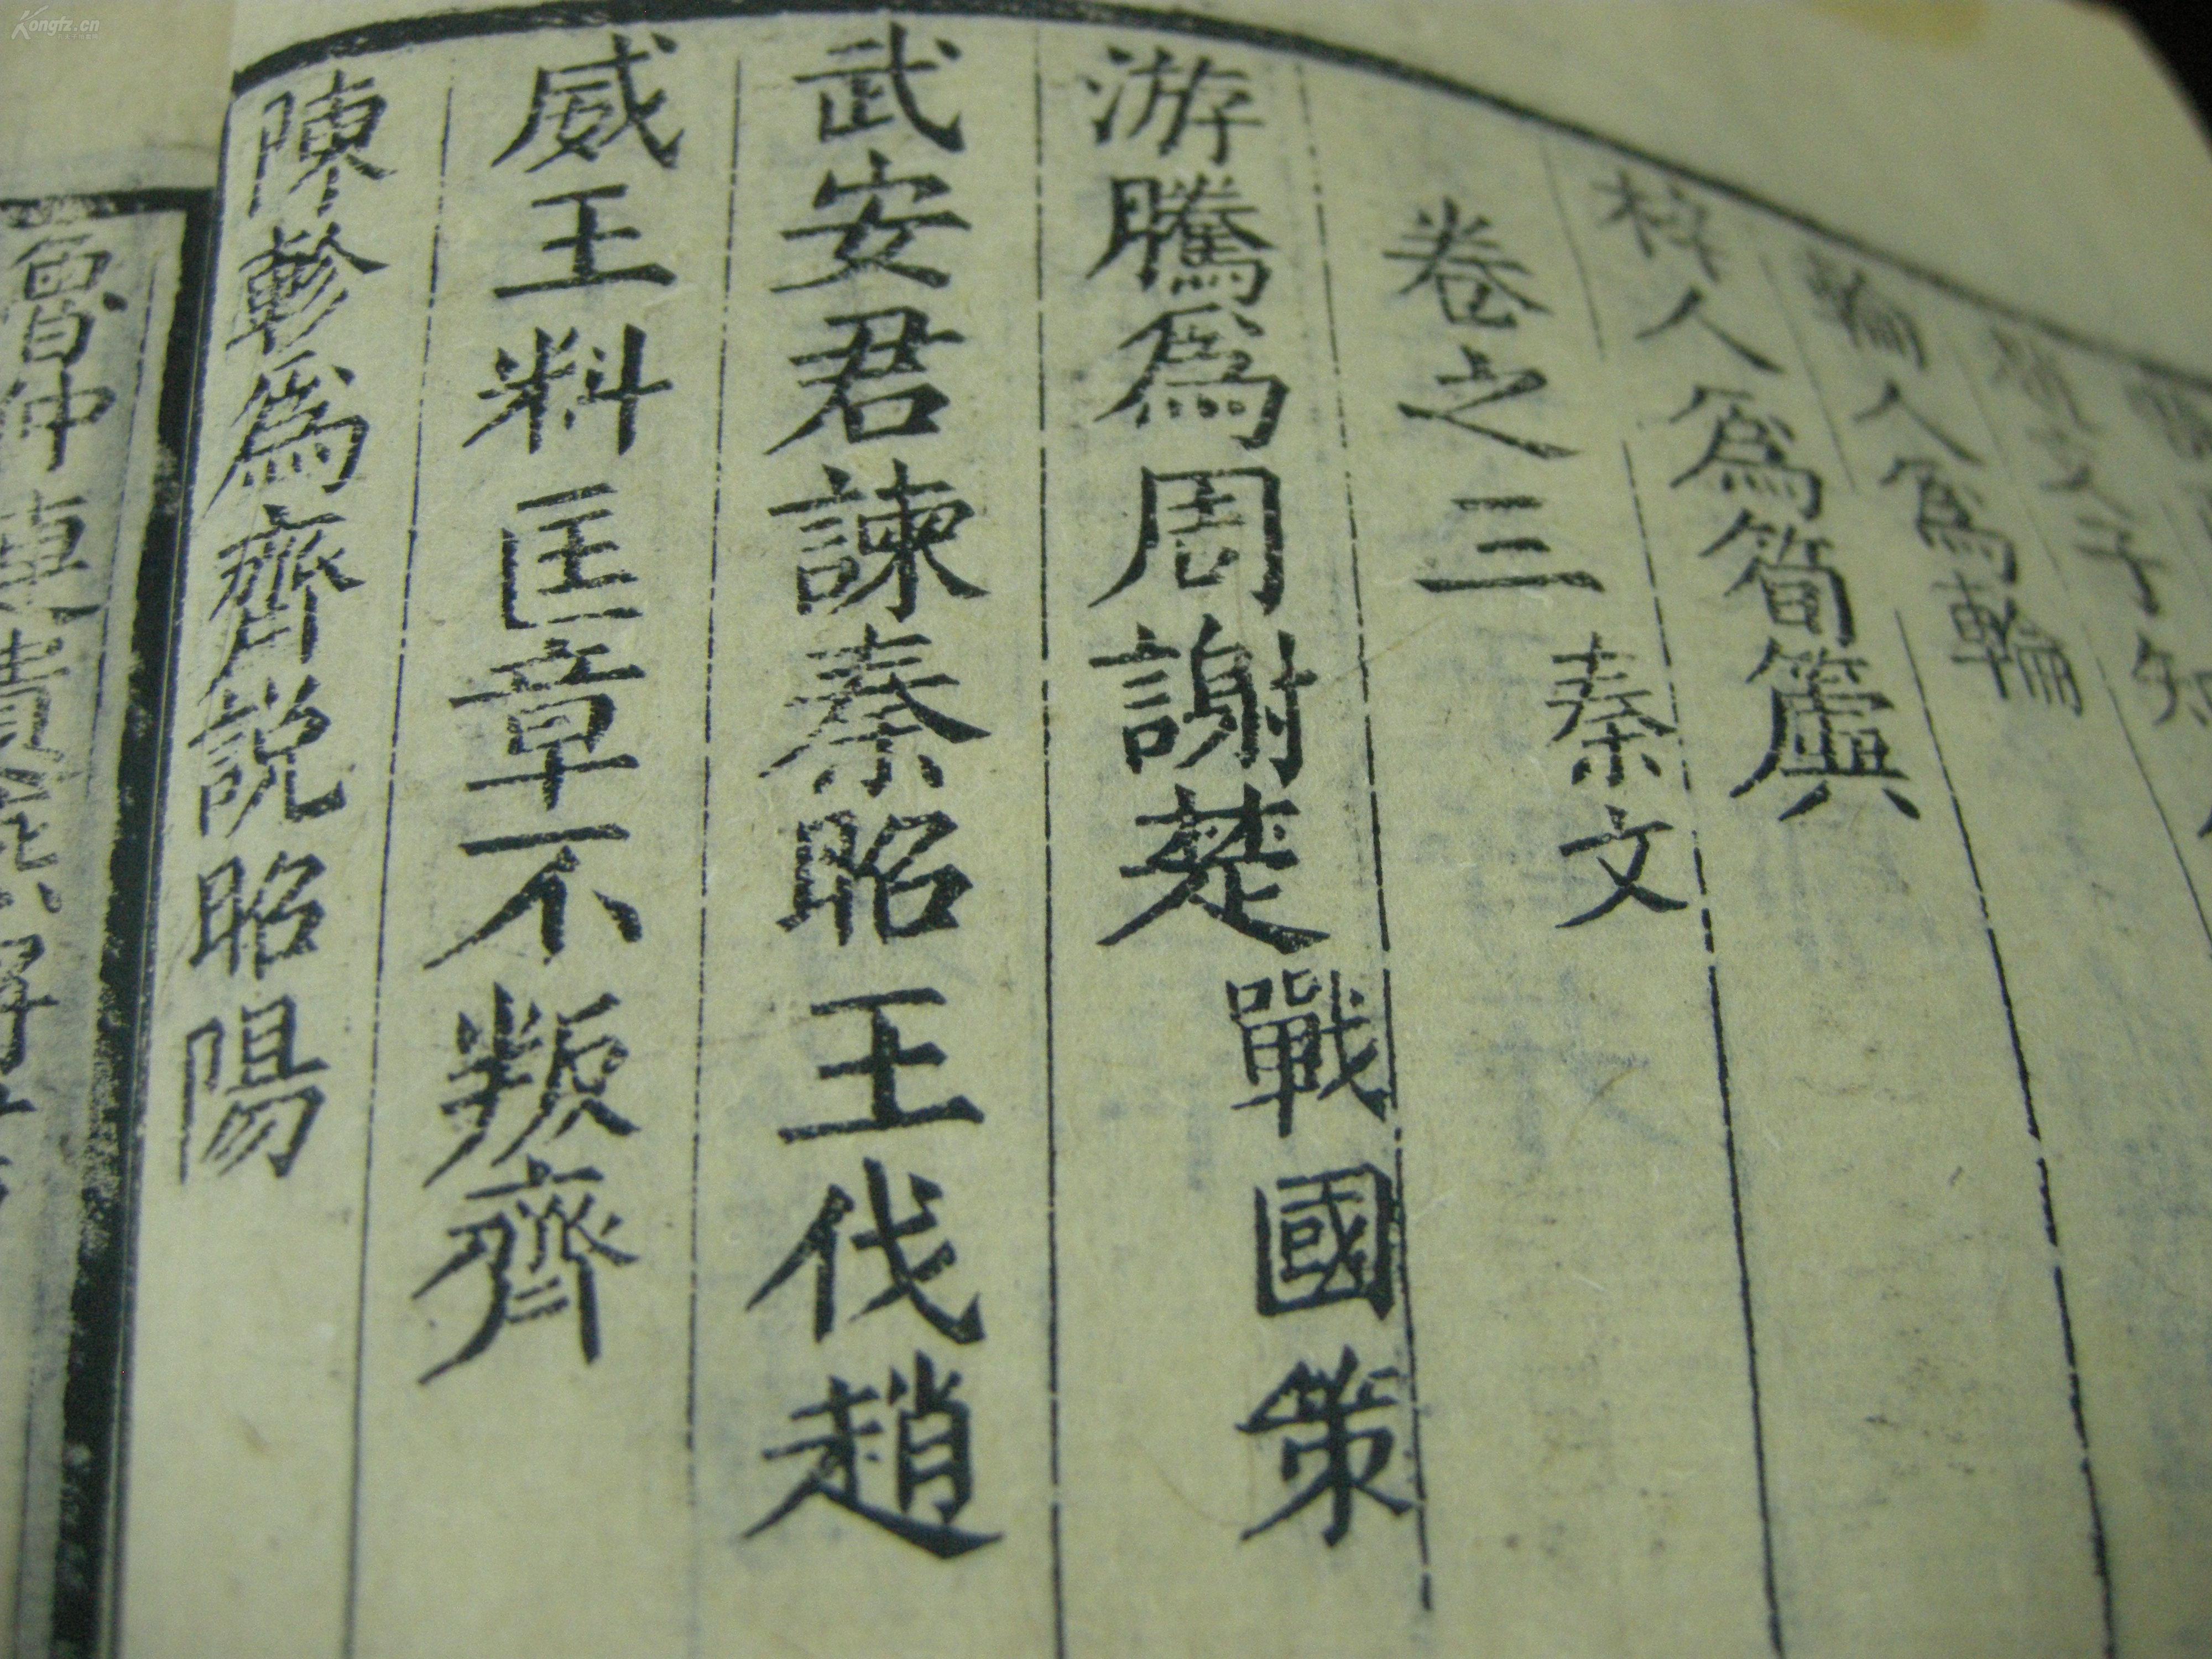 輪人爲輪
梓人爲筍簴
卷之三 秦文
游騰爲周謝楚 戰國策
武安君諫秦昭王伐趙
威王料匡章不叛齊
陳軫爲齊說昭陽
魯仲連
Kongfz.cn